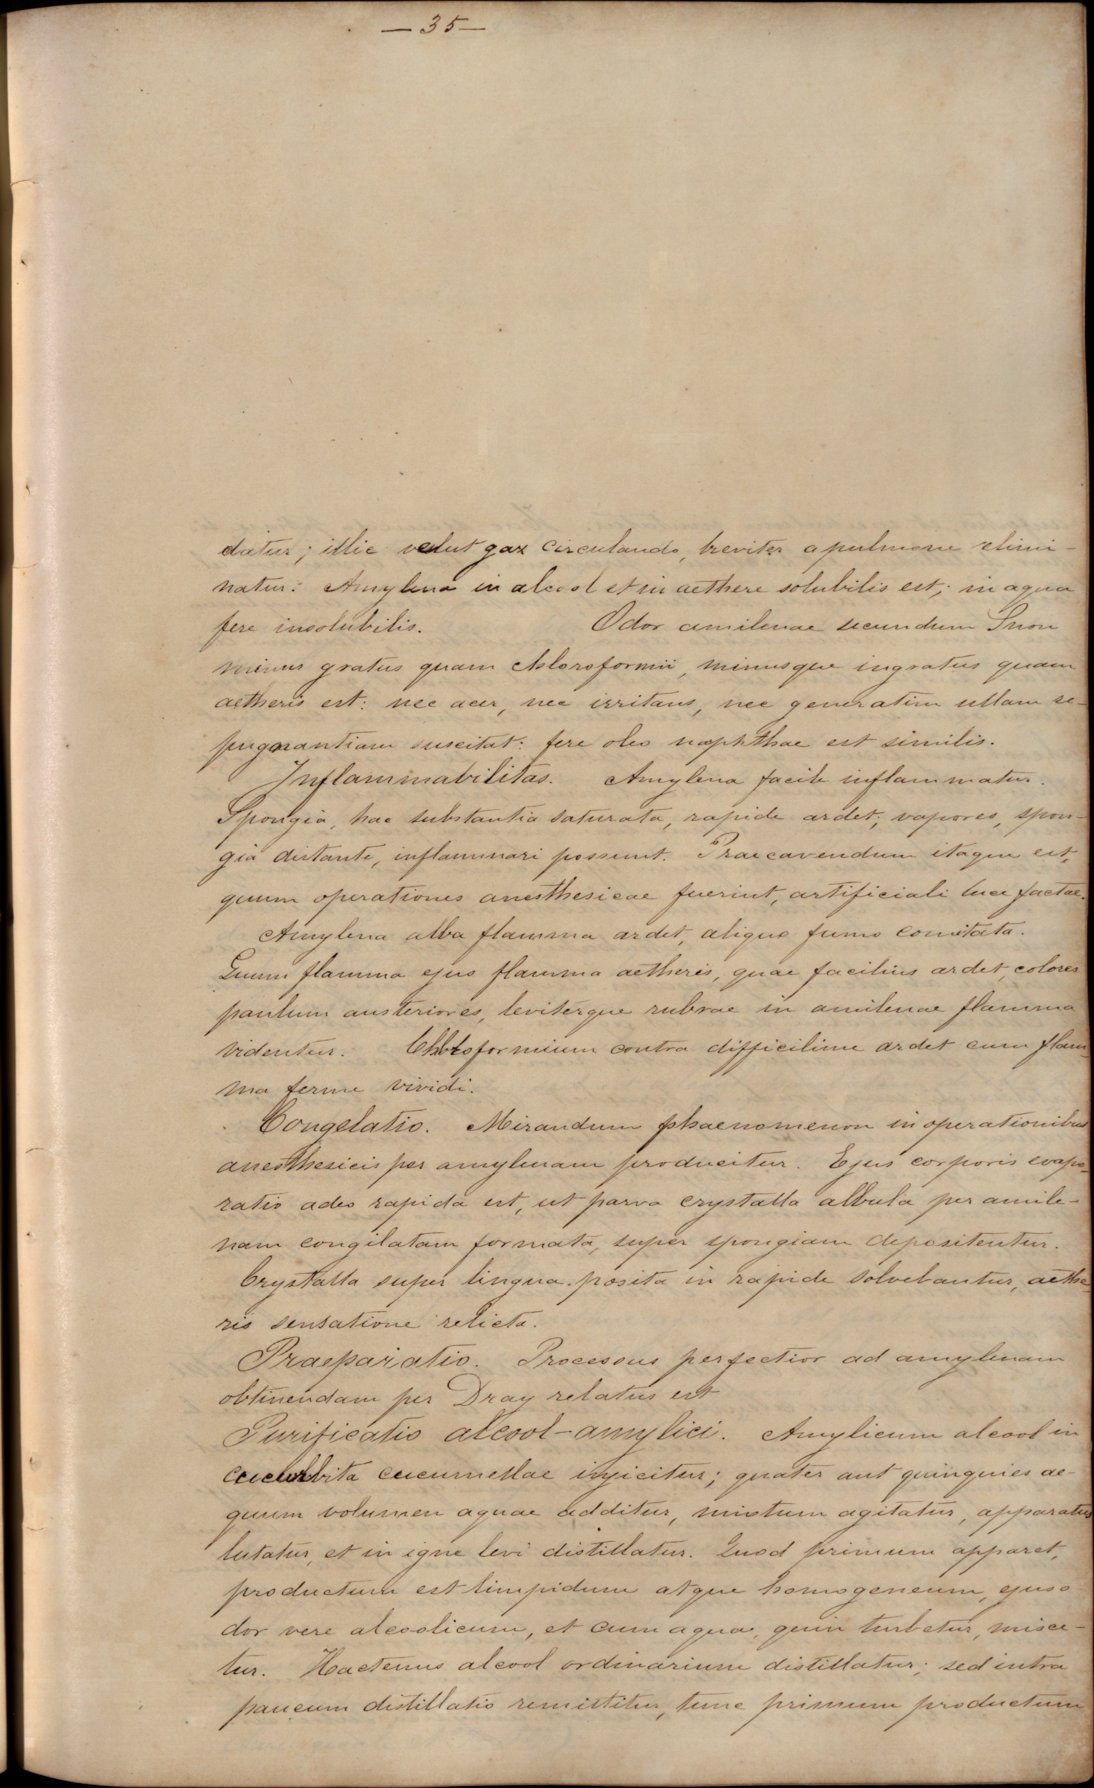 — 35 —
datur; illic velut gaz circulando, breviter a pulmone elimi-
natur: Amylena in alcool et in aethere solubilis est; in aqua
fere insolubilis. Odor amilenae secundum Snon
minus gratus quam chloroformii, minusque ingratus quam
aetheris est: nec acer, nec irritans, nec generatim ullam re-
pugnantiam suscitat: fere oleo naphthae est similis.
Inflammabilitas. Amylena facile inflammatur.
Spongia, hac substantia saturata, rapide ardet; vapores, spon-
gia distante, inflammari possunt. Praecavendum itaque est,
quum operationes anesthesicae fuerint, artificiali luce factae.
Amylena alba flamma ardet, aliquo fumo comitata.
Quum flamma ejus flamma aetheris, quae facilius ardet, colores
paulum austeriores, leviterque rubrae in amilenae flamma
videntur. Chloroformium contra difficilime ardet cum flam-
ma ferme vividi.
Congelatio. Mirandum phaenomenon in operationibus
anesthesicis per amylenam producitur. Ejus corporis evapo-
ratio adeo rapida est, ut parva crystalla albula per amile-
nam congilatam formata, super spongiam depositentur.
Crystalla super lingua posita in rapide solvebantur, aethe-
ris sensatione relicta.
Praeparatio. Processus perfectior ad amylenam
obtinendam per Dray relatus est
Purificatio alcool-amylici. Amylicum alcool in
cucurbita cucumellae injicitur; quater aut quinquies ae-
quum volumen aquae additur, mixtum agitatur, apparatus
lutatur, et in igne levi distillatur. Quod primum apparet,
productum est limpidum atque homogeneum, ejus o-
dor vere alcoolicum, et cum aqua, quin turbetur, misce-
tur. Hactenus alcool ordinarium distillatur; sed intra
paucum distillatio remittitur, tunc primum productum